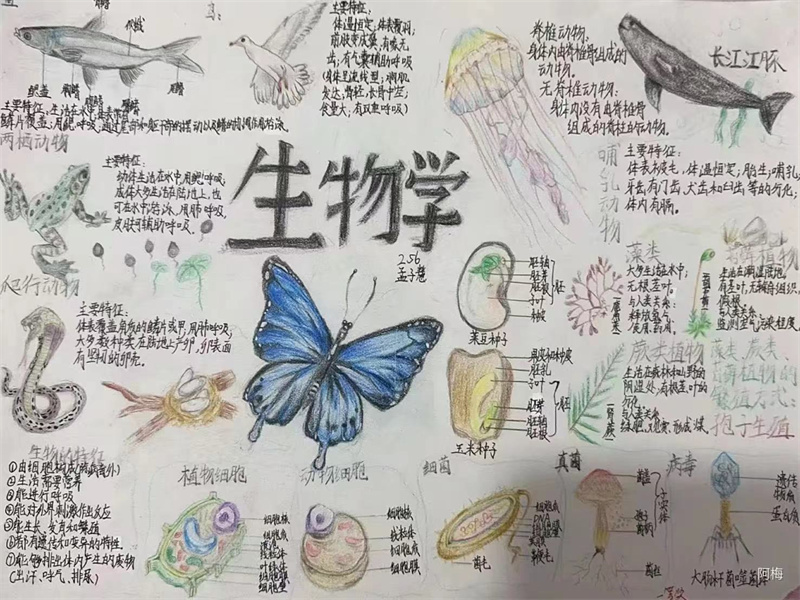 鸟:
主要特征:
体温恒定,体表覆羽;
前肢变成翼;有喙无
齿;有气囊辅助呼吸
(身体呈流线型;胸肌
发达;骨轻,长骨中空;
食量大;有双重呼吸)
脊椎动物:
身体内由脊椎骨组成的
动物。
无脊椎动物:
身体内没有由脊椎骨
组成的脊柱的动物。
长江江豚
鳃盖
主要特征:生活在水中;
鳞片覆盖;用鳃呼吸,通过尾部和躯干部的摆动以及鳍的协调作用游泳。
两栖动物
主要特征:
幼体生活在水中,用鳃呼吸;
成体大多生活在陆地上,也
可在水中游泳,用肺呼吸,
皮肤可辅助呼吸。
哺乳动物
主要特征:
体表被毛,体温恒定;胎生,哺乳;
牙齿有门齿、犬齿和臼齿等的分化;
体内有膈。
生物学
256
孟子慧
爬行动物
主要特征:
体表覆盖角质的鳞片或甲,用肺呼吸;
大多数种类在陆地上产卵,卵表面
有坚韧的卵壳。
胚轴
胚芽
胚根
子叶
种皮
胚
菜豆种子
果皮和种皮
胚乳
子叶
胚芽
胚轴
胚根
胚
玉米种子
藻类
大多生活在水中;
无根茎叶
与人类关系:
释放氧气,
食用药用。
苔藓植物
生活在潮湿陆地,
有茎、叶,无输导组织,
假根
与人类关系:
监测空气污染程度
蕨类植物
生活在森林和山野的
阴湿处,有根茎叶的
分化
与人类关系:
藻类、蕨类、
苔藓植物的
繁殖方式:
孢子生殖
生物的特征
①由细胞构成(病毒除外)
②生活需要营养
③能进行呼吸
④能对外界刺激作出反应
⑤能生长、发育和繁殖
⑥都有遗传和变异的特性
⑦能够排出体内产生的废物
(出汗,呼气,排尿)
植物细胞
细胞核
细胞质
液泡
线粒体
叶绿体
细胞膜
细胞壁
动物细胞
细胞核
线粒体
细胞质
细胞膜
细菌
细胞质
DNA
鞭毛
菌毛
真菌
菌盖
孢子
菌柄
子实体
菌丝
病毒
遗传物质
蛋白质
大肠杆菌噬菌体
阿梅